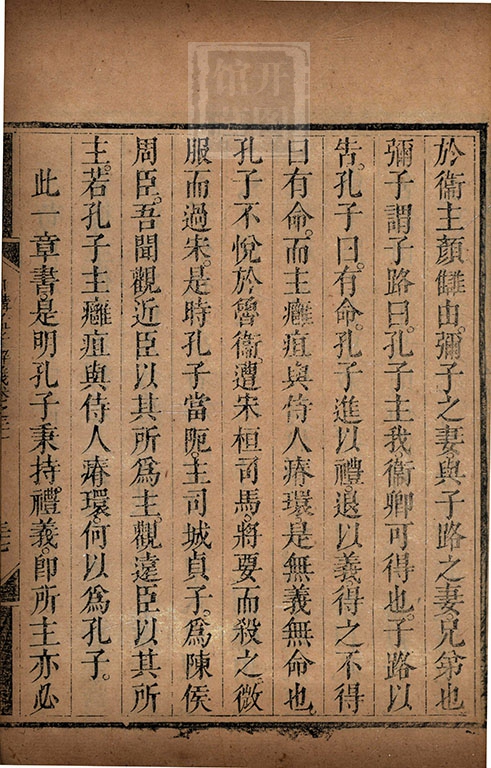 於衞主顏讎由。彌子之妻。與子路之妻。兄弟也
彌子謂子路曰。孔子主我。衞卿可得也。子路以
告。孔子曰。有命。孔子進以禮。退以義。得之不得
曰有命。而主癰疽與侍人瘠環。是無義無命也
孔子不悅於魯衞。遭宋桓司馬。將要而殺之。微
服而過宋。是時孔子當阨。主司城貞子。爲陳侯
周臣。吾聞觀近臣。以其所爲主。觀遠臣。以其所
主。若孔子主癰疽與侍人瘠環。何以爲孔子。
此一章書。是明孔子秉持禮義。卽所主亦必